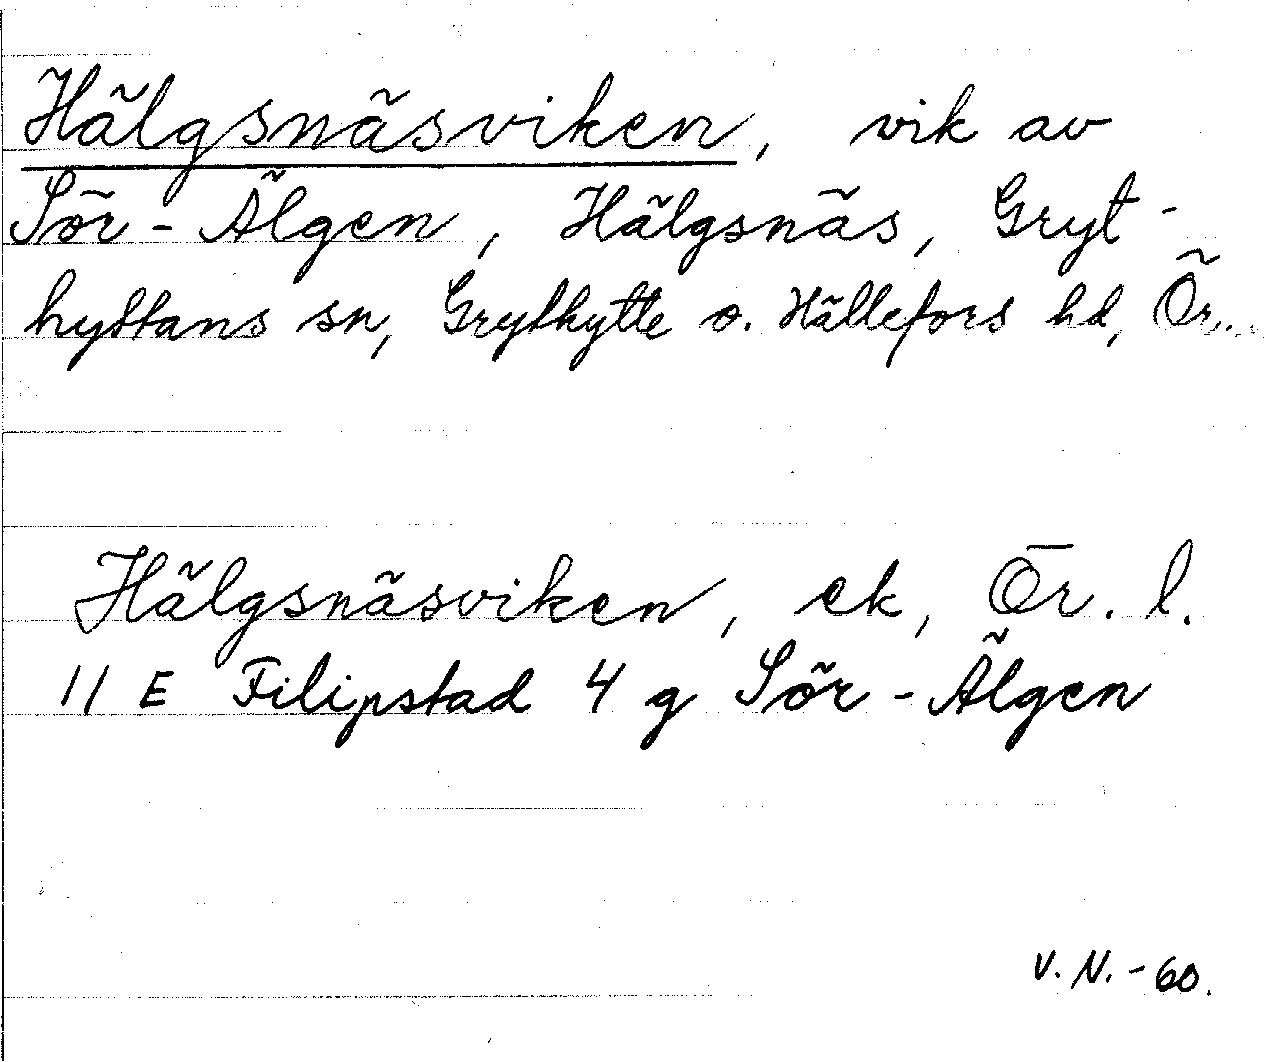 Hälgsnäsviken, vik av
Sör-Älgen, Hälgsnäs, Gryt-
hyttans sn, Grythytte o. Hällefors hd, Ör.
Hälgsnäsviken, ek, Ör. l.
11 E Filipstad 4 g Sör-Älgen
V. N. -60.